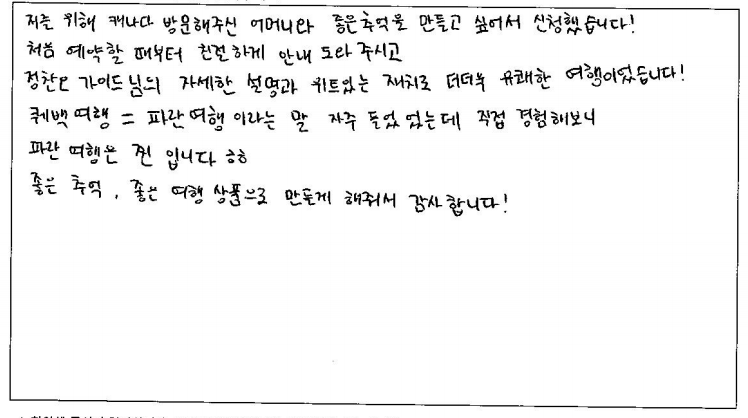 저를 위해 캐나다 방문해주신 어머니와 좋은추억을 만들고 싶어서 신청했습니다!
처음 예약할 때부터 친절하게 안내 도와 주시고
정찬오 가이드님의 자세한 설명과 위트있는 재치로 더더욱 유쾌한 여행이었습니다!
퀘백여행 = 파란여행 이라는 말 자주 들었었는데 직접 경험해보니
파란 여행은 찐 입니다 ㅎㅎ
좋은 추억, 좋은 여행 상품으로 만들게 해줘서 감사합니다!